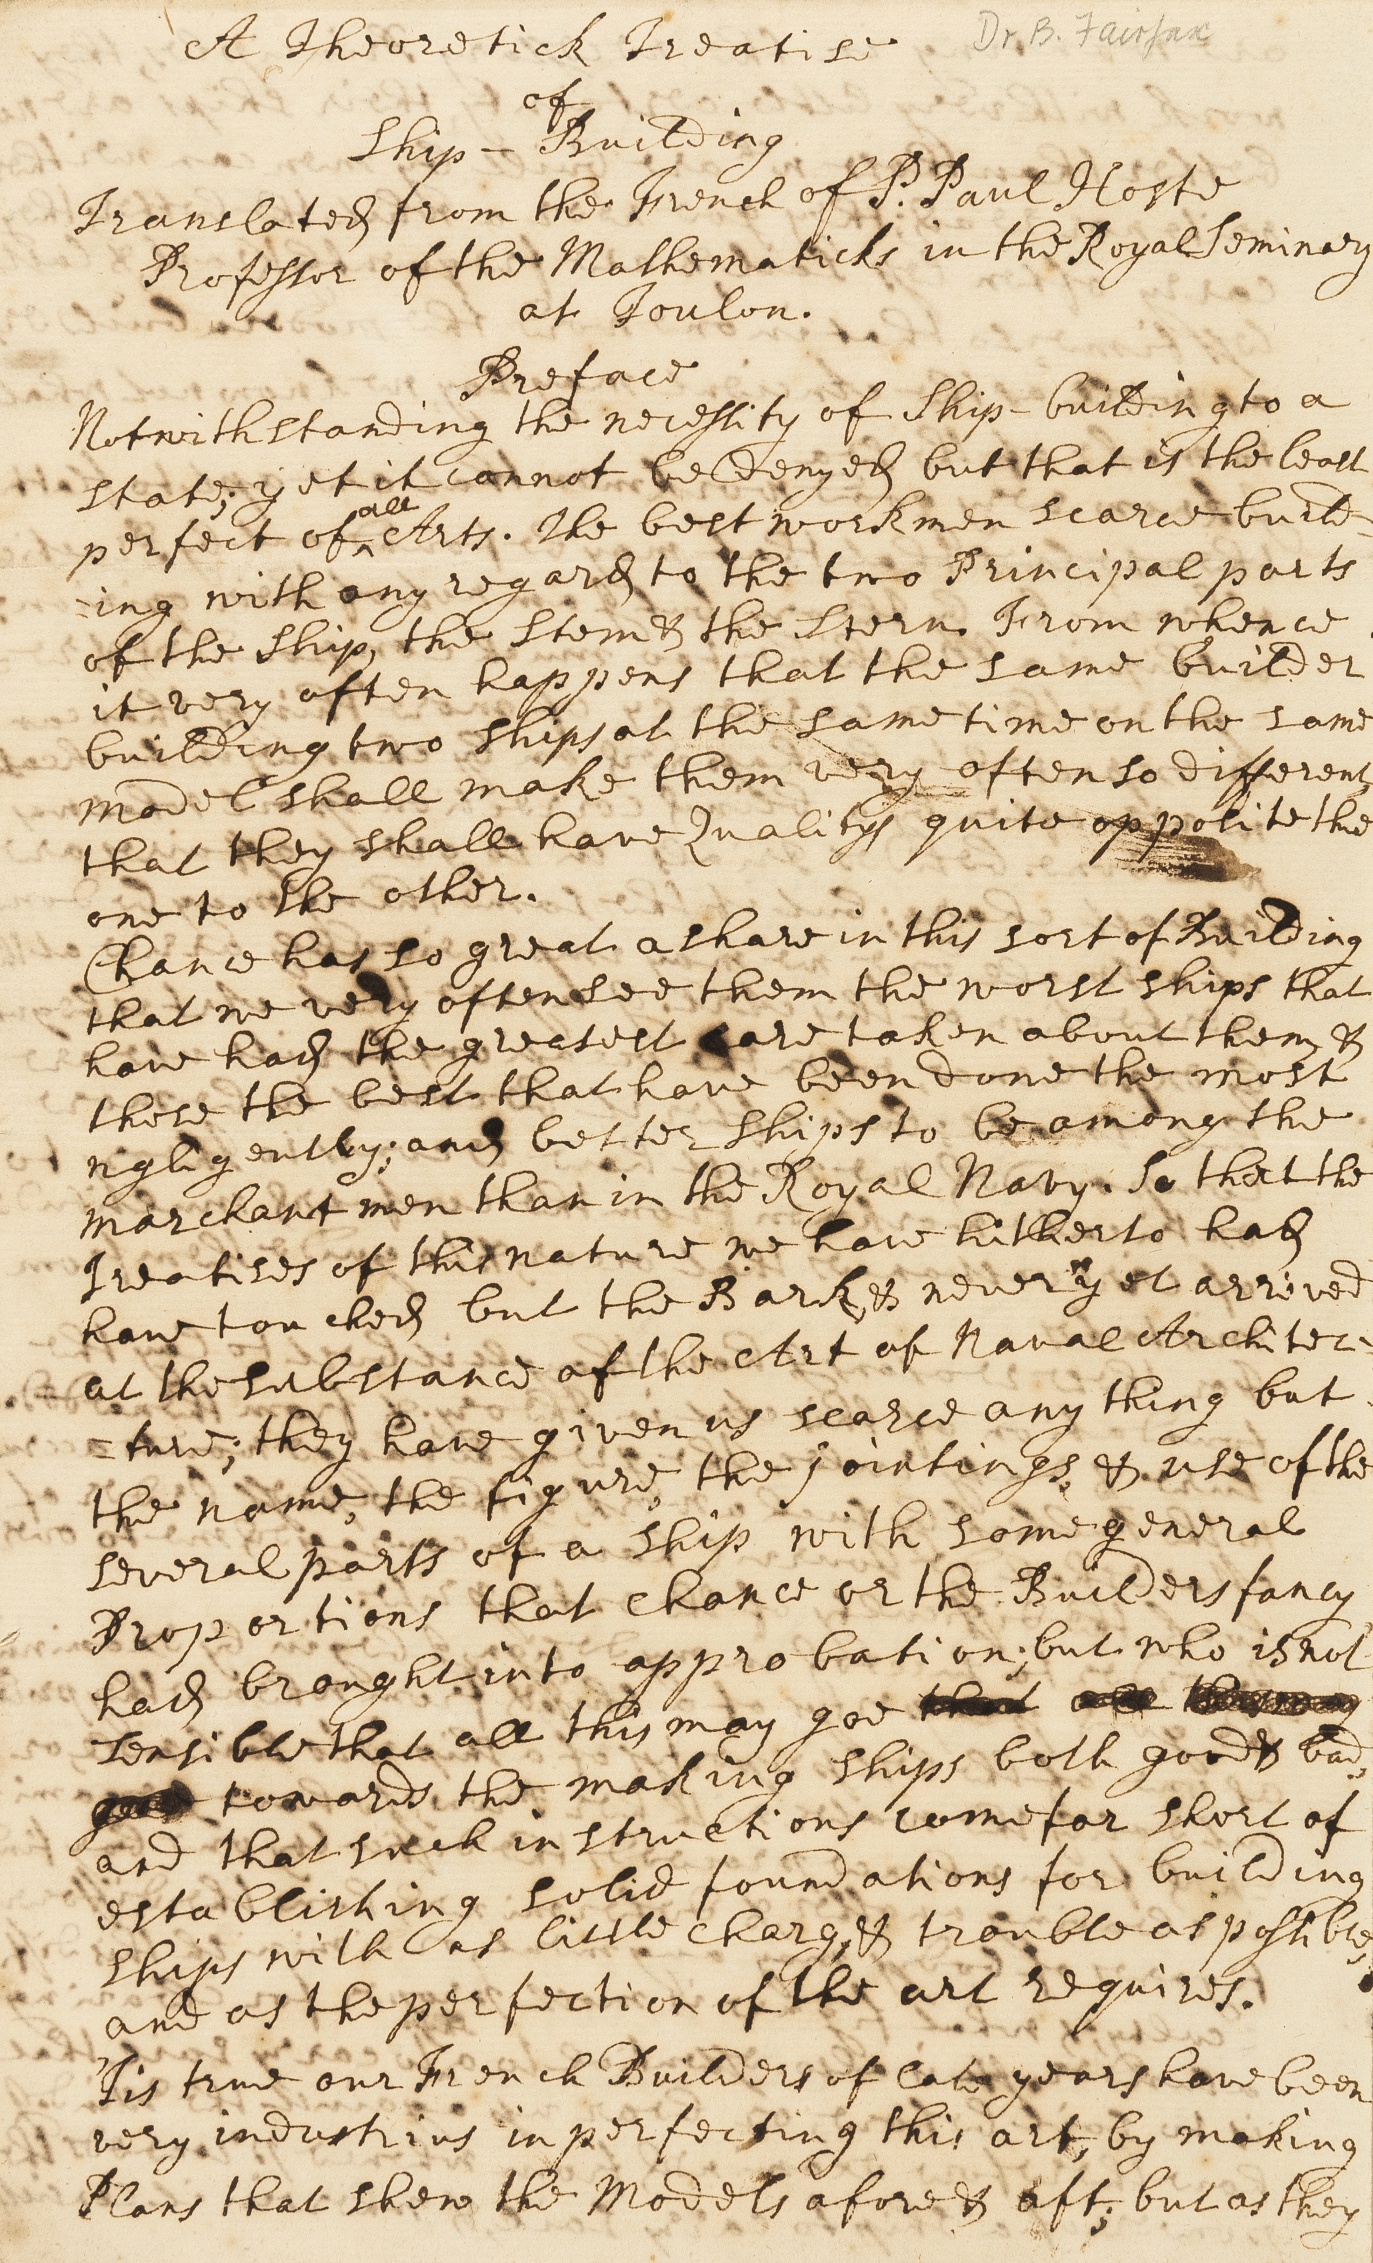 A Theoretick Treatise
Dr. B. Fairfax
of
Ship - Building
Translated from the French of P. Paul Hoste
Professor of the Mathematicks in the Royal Seminary
at Toulon.
Preface
Notwithstanding the necessity of Ship-building to a
state; yet it cannot be denyed but that is the least
perfect of all Arts. The best workmen scarce build=
=ing with any regard to the two Principal parts
of the Ship, the Stem & the Stern. From whence
it very often happens that the same builder
building two ships at the same time on the same
model shall make them very often so different,
that they shall have Qualitys quite opposite the
one to the other.
Chance has so great a share in this sort of Building
that we very often see them the worst ships that
have had the greatest care taken about them, &
those the best that have been done the most
ngligently; and better ships to be among the
marchant men than in the Royal Navy. So that the
Treatises of this nature we have hitherto had
have touched but the Bark, & never yet arrived
at the substance of the Art of Naval Architec=
=ture; they have given us scarce any thing but
the name, the figure, the jointings, & use of the
several parts of a ship with some general
Proportions that chance or the Builders fancy
had brought into approbation; but who is not
sensible that all this may goe that all this may
good towards the making ships both good & bad,
and that such instructions come far short of
establishing solid foundations for building
ships with as little charg, & trouble as possible,
and as the perfection of the art requires.
'Tis true our French Builders of late years have been
very industrius in perfecting this art, by making
Plans that shew the Models afore & aft; but as they